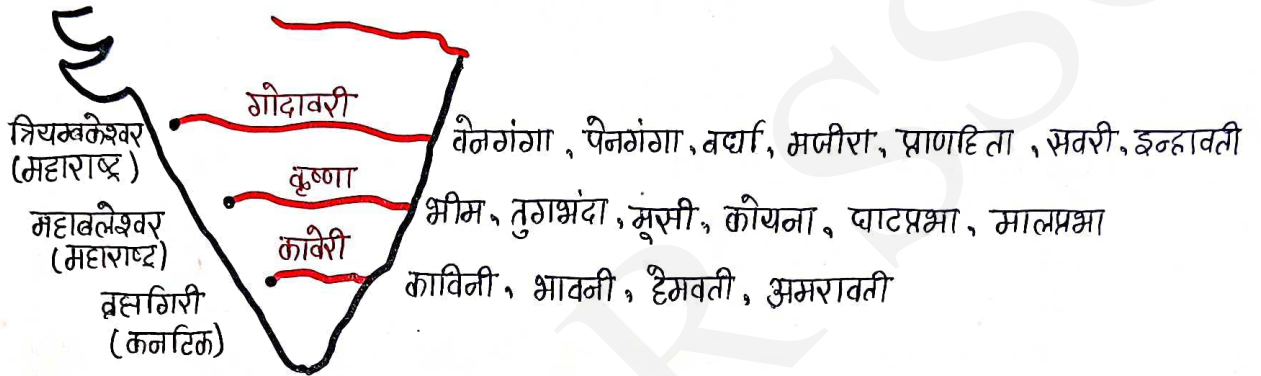 गोदावरी
त्रियम्बकेश्वर
(महाराष्ट्र)
वेनगंगा, पेनगंगा, वर्धा, मजीरा, प्राणहिता, सवरी, इन्द्रावती
कृष्णा
महाबलेश्वर
(महाराष्ट्र)
भीम, तुगभंदा, मूसी, कोयना, घाटप्रभा, मालप्रभा
कावेरी
ब्रह्मगिरी
(कर्नाटक)
काविनी, भावनी, हेमवती, अमरावती
RSS